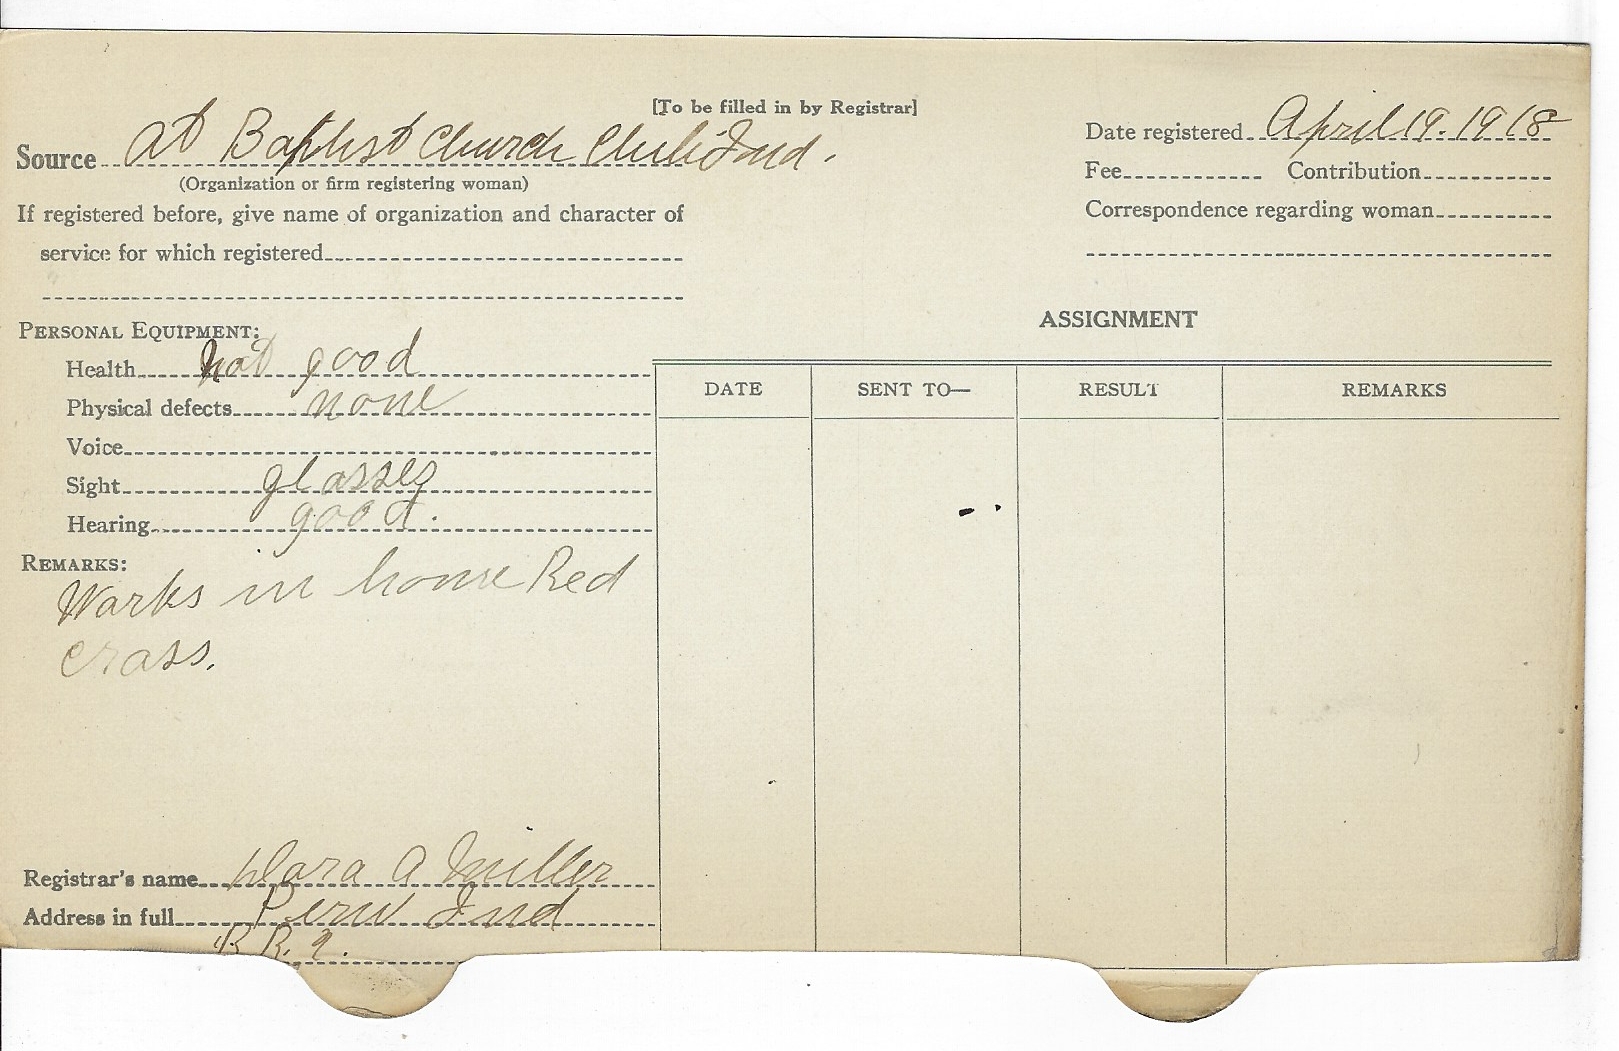 [To be filled in by Registrar]
Source At Baptist Church Chili Ind.
(Organization or firm registering woman)
If registered before, give name of organization and character of
service for which registered
Date registered April 19. 1918
Fee Contribution
Correspondence regarding woman
PERSONAL EQUIPMENT:
Health not good
Physical defects none
Voice
Sight glasses
Hearing good.
REMARKS:
Works in home Red
Cross.
ASSIGNMENT
DATE SENT TO— RESULT REMARKS
Registrar's name A Miller
Address in full Peru Ind
R R. 9.